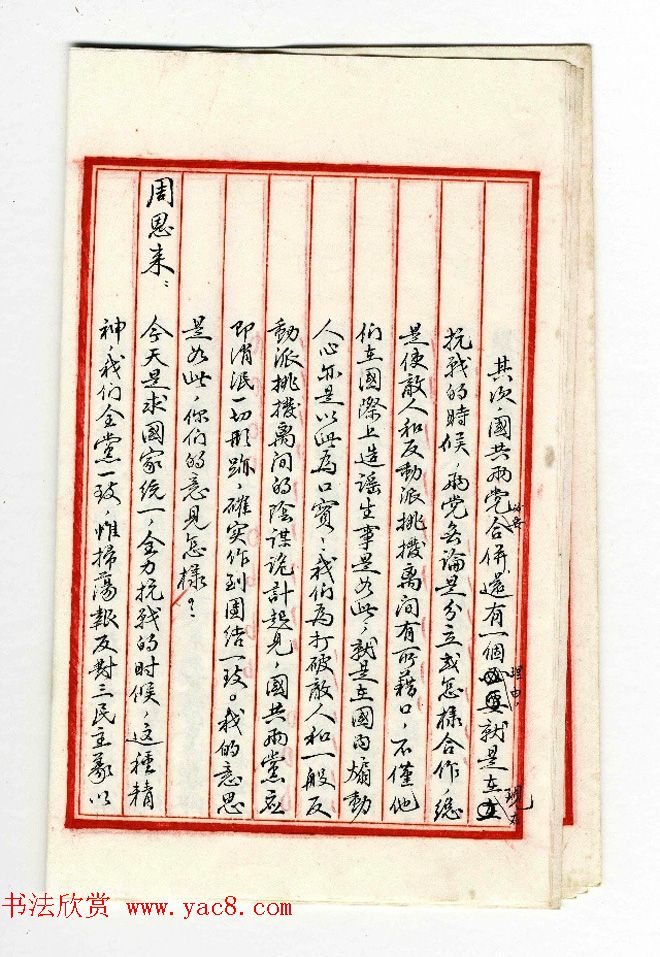 其次，國共兩党合併必要還有一個理由，就是在现在
抗战的時候，兩党無論是分立或怎樣合作，總
是使敵人和反動派挑撥离间有所藉口，不僅他
们在國際上造谣生事是如此，就是在國内煽動
人心亦是以此為口實，我们為打破敵人和一般反
動派挑撥离间的陰谋诡计起見，國共兩黨应
即消泯一切形跡，確实作到團结一致。我的意思
是如此，你们的意見怎樣？
周恩来：今天是求國家统一，全力抗战的时候，这種精
神，我们全黨一致，惟掃蕩報反對三民主義以
书法欣赏 www.yac8.com